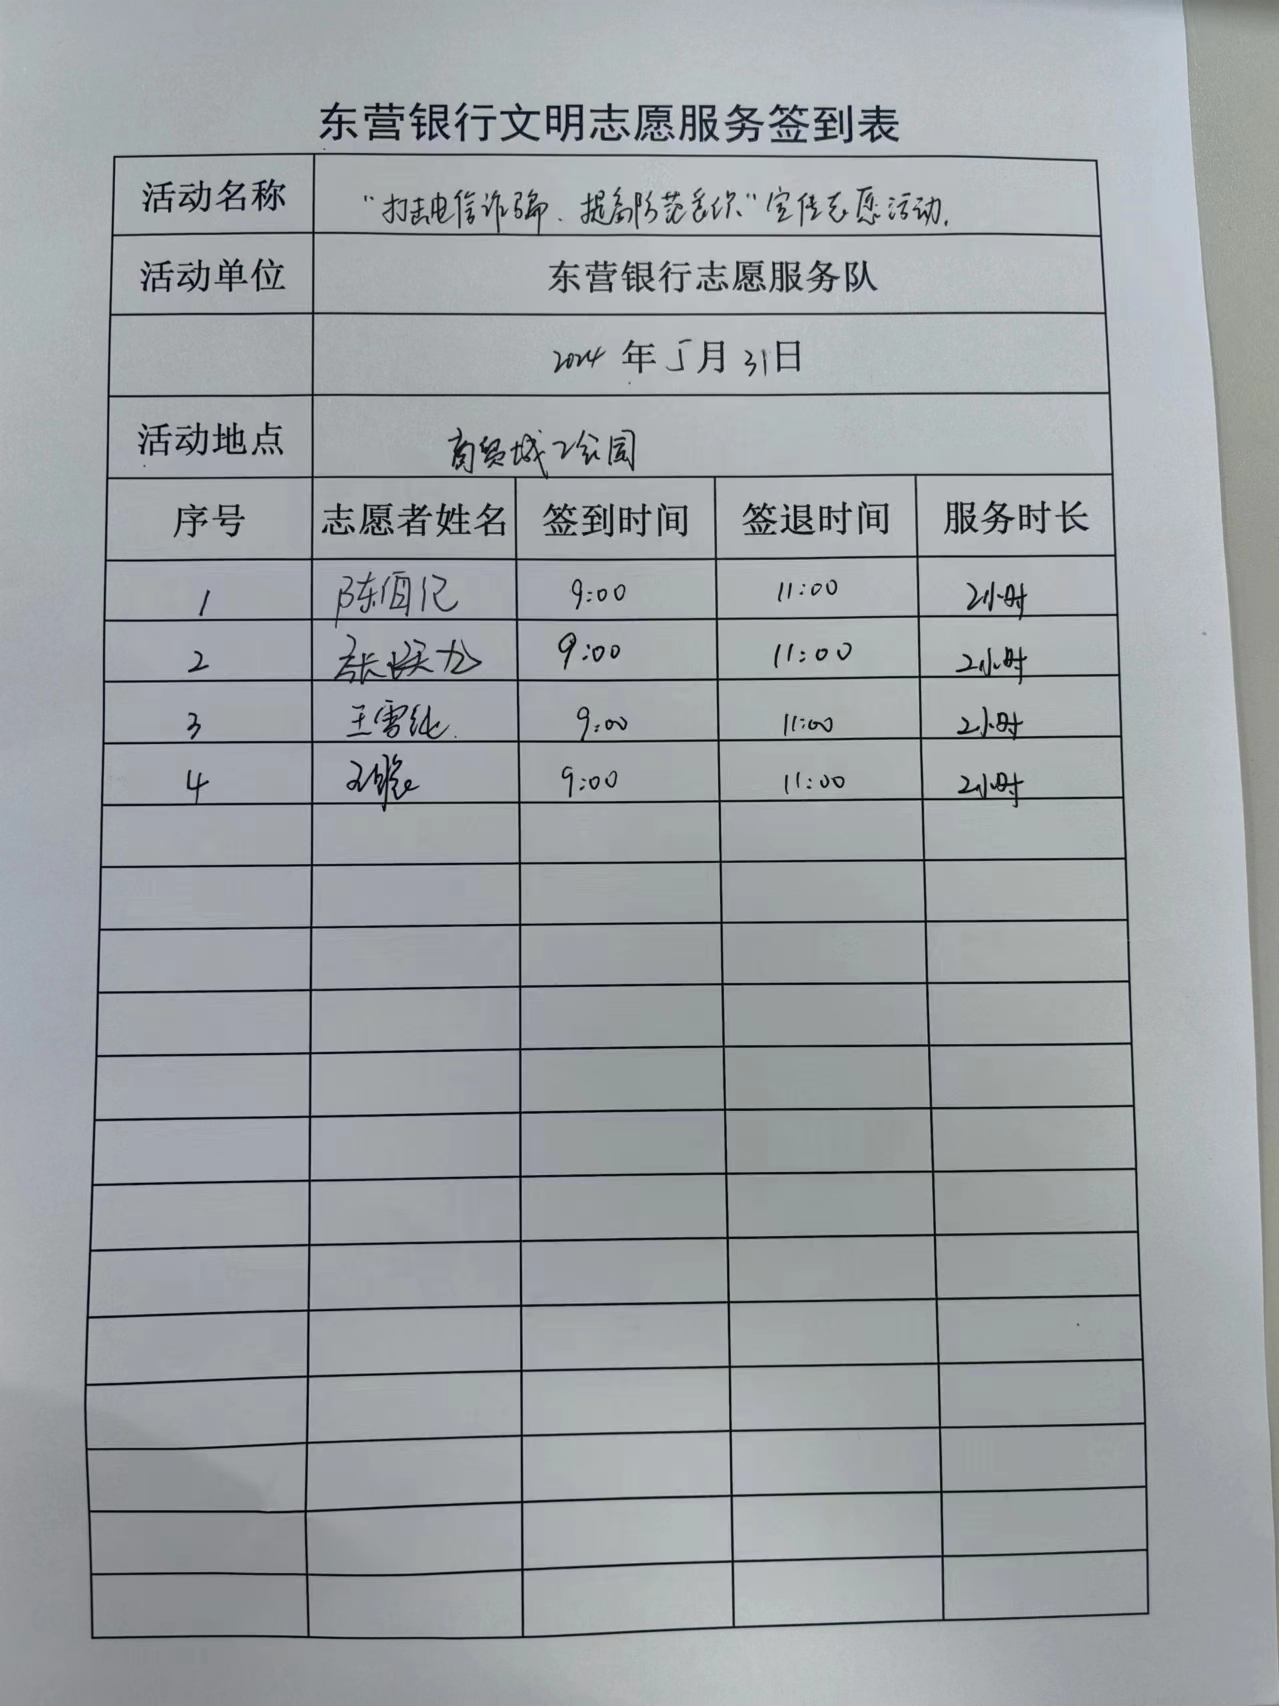 东营银行文明志愿服务签到表
活动名称 “打击电信诈骗、提高防范意识”宣传志愿活动.
活动单位 东营银行志愿服务队
2024 年 5 月 31 日
活动地点 商贸城工公园
序号 志愿者姓名 签到时间 签退时间 服务时长
1 陈佰亿 9:00 11:00 2小时
2 张 9:00 11:00 2小时
3 王雪纯 9:00 11:00 2小时
4 9:00 11:00 2小时